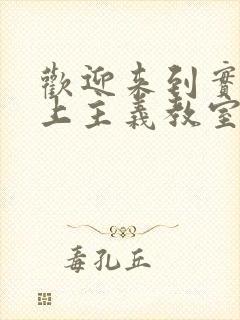 歡迎来到實
上主義教室
毒孔丘